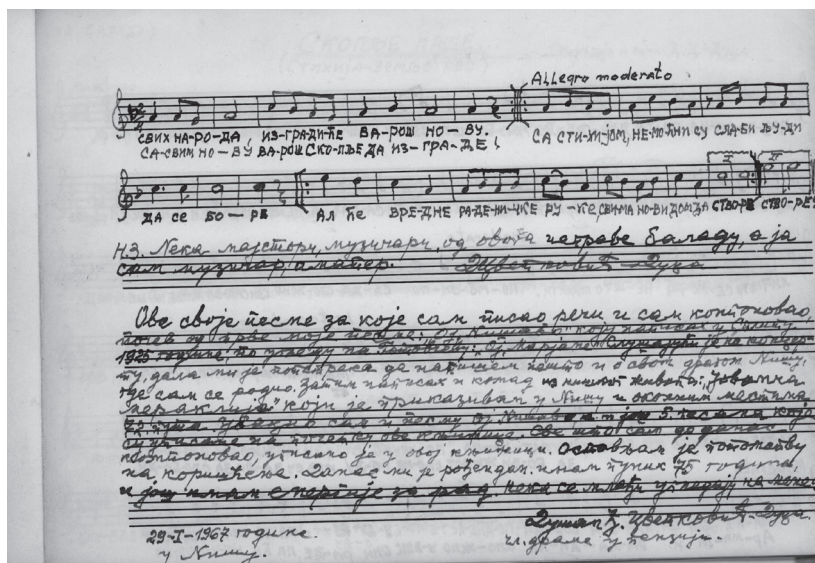 Allegro moderato
СВИХ НА-РО-ДА, ИЗ-ГРА-ДИ-ЋЕ ВА-РОШ НО-ВУ. СА СТИ-ХИЈОМ, НЕ-МОЋНИ СУ СЛА-БИ ЉУ-ДИ
СА-СВИМ НО-ВУ ВА-РОШ СКО-ПЉЕ ДА ИЗ-ГРА-ДЕ!
I II
ДА СЕ БО-РЕ АЛ ЋЕ ВРЕ-ДНЕ РА-ДЕ-НИ-ЧКЕ РУ-КЕ, СВИМА НО-ВИ ДОМ ДА СТВО-РЕ СТВО-РЕ!
Н.З. Нека мајстори, музичари, од овога направе баладу, а ја
сам музичар, аматер. Цветковић-Дуца
Ове своје песме за које сам писао речи и сам компоновао,
почев од прве моје песме: "Ој Нишаво" коју написах у
1925 године, по угледу на "Ој, Марјано" Слушајући је на концер-
ту, дала ми је потстрека да напишем нешто и о свом драгом Нишу,
где сам се родио. Затим написах и комад из нишког живота: "Јованча
који је приказиван у Нишу и околним местима,
сам и песму Ој Нишаво и још 5 песама које
су уписане на почетку ове књижице. Све што сам до данас
компоновао, уписано је у овој књижици. Остављам је потомству
на коришћење. Данас ми је рођендан. Имам пуних 75 година
и још имам енергије за рад. Нека се млађи угледају на мене
Душан Ђ. Цветковић-Дуца
29-I-1967 године чл. драме у пензији.
у Нишу.